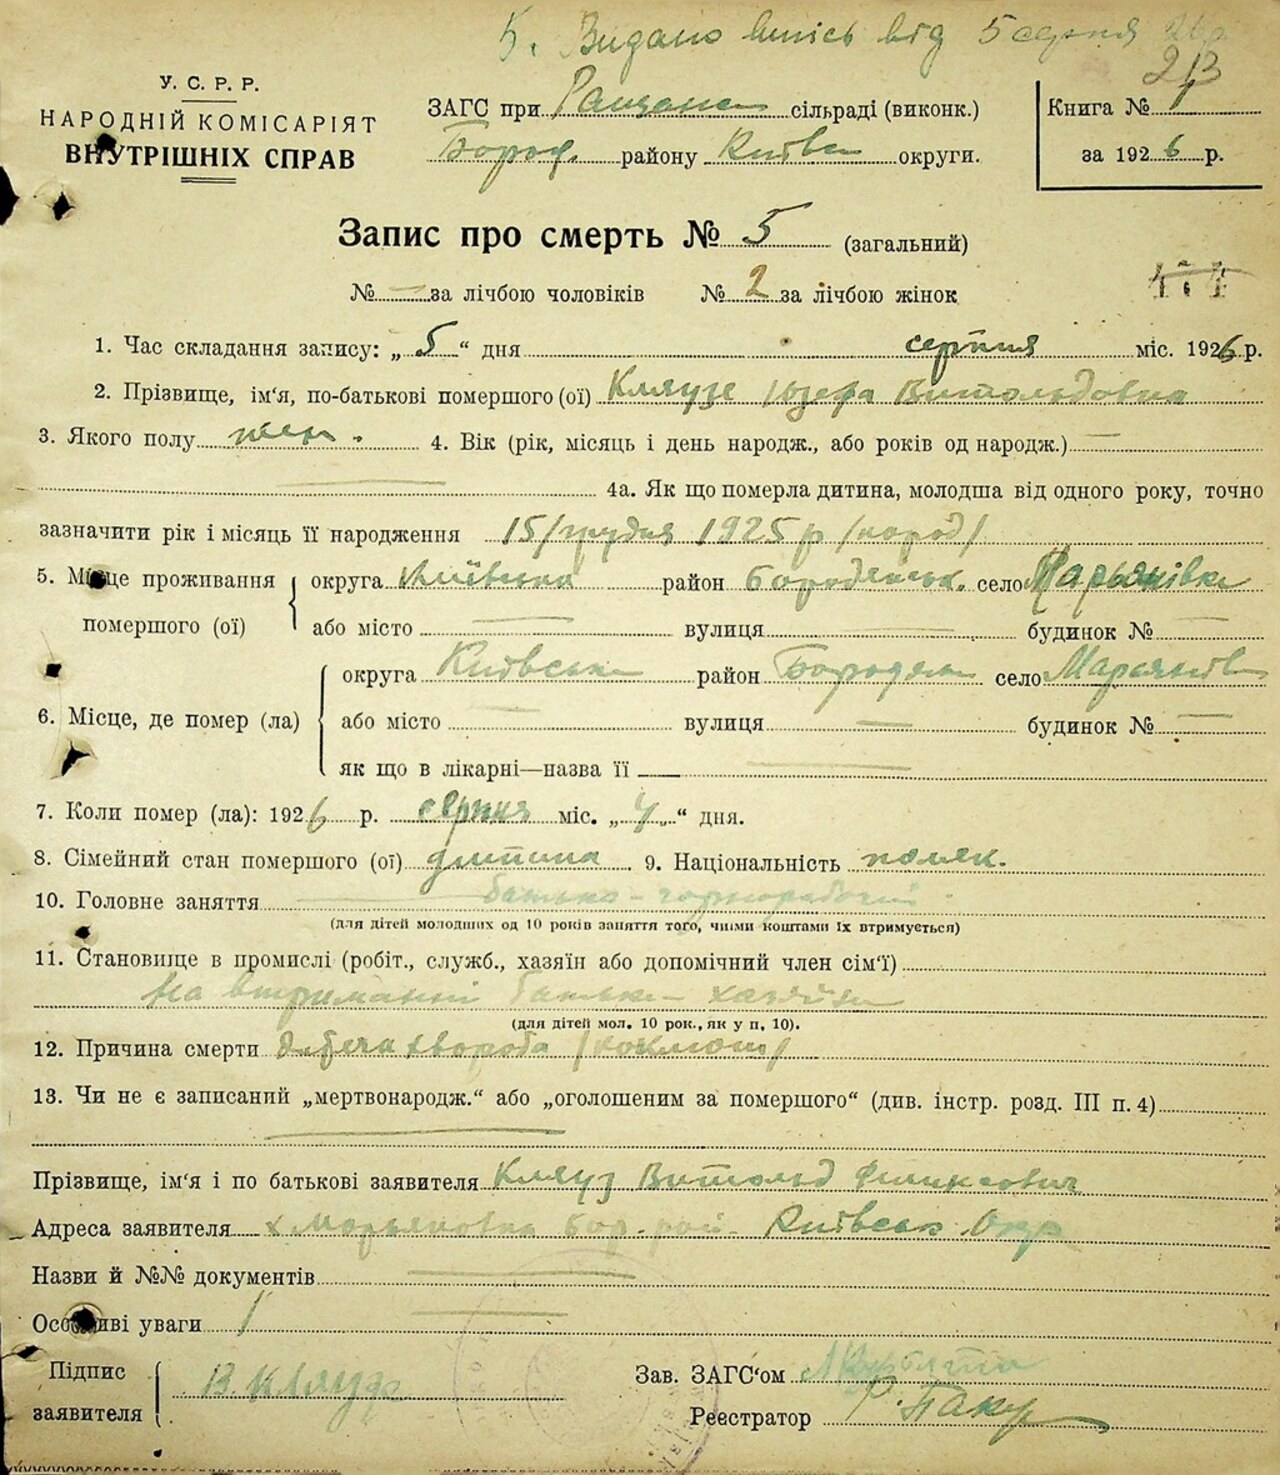 5. Видано випись від 5 серпня 26 р
213
У. С. Р. Р.
НАРОДНІЙ КОМІСАРІЯТ
ВНУТРІШНІХ СПРАВ
ЗАГС при сільраді (виконк.)
Бород. району Київськ округи.
Книга № 1
за 1926 р.
Запис про смерть № 5 (загальний)
№ — за лічбою чоловіків № 2 за лічбою жінок
1. Час складання запису: „5“ дня серпня міс. 1926 р.
2. Прізвище, ім'я, по-батькові помершого (ої) Кляузе Юзефа Витольдовна
3. Якого полу жін. 4. Вік (рік, місяць і день народж., або років од народж.) —
— 4а. Як що померла дитина, молодша від одного року, точно
зазначити рік і місяць її народження 15/грудня 1925 р /народ/
5. Місце проживання помершого (ої) округа Київська район Бородянськ. село Марьянівка
або місто — вулиця — будинок № —
6. Місце, де помер (ла) округа Київська район Бородян село Марьянівка
або місто — вулиця — будинок № —
як що в лікарні—назва її —
7. Коли помер (ла): 1926 р. серпня міс. „4„“ дня.
8. Сімейний стан помершого (ої) дитина 9. Національність поляк.
10. Головне заняття батько - чорноробочий
(для дітей молодших од 10 років заняття того, чиїми коштами їх втримується)
11. Становище в промислі (робіт., служб., хазяїн або допомічний член сім'ї)
На втриманні батька - хазяїна
(для дітей мол. 10 рок., як у п. 10).
12. Причина смерти дитяча хвороба /коклюш/
13. Чи не є записаний „мертвонародж.“ або „оголошеним за помершого“ (див. інстр. розд. III п. 4)
—
Прізвище, ім'я і по батькові заявителя Кляуз Витольд Филиксович
Адреса заявителя х Марьяновка Бор. рай. Київськ Окр
Назви й №№ документів —
Особливі уваги —
Підпис заявителя В. Кляузе
Зав. ЗАГС'ом
Реестратор